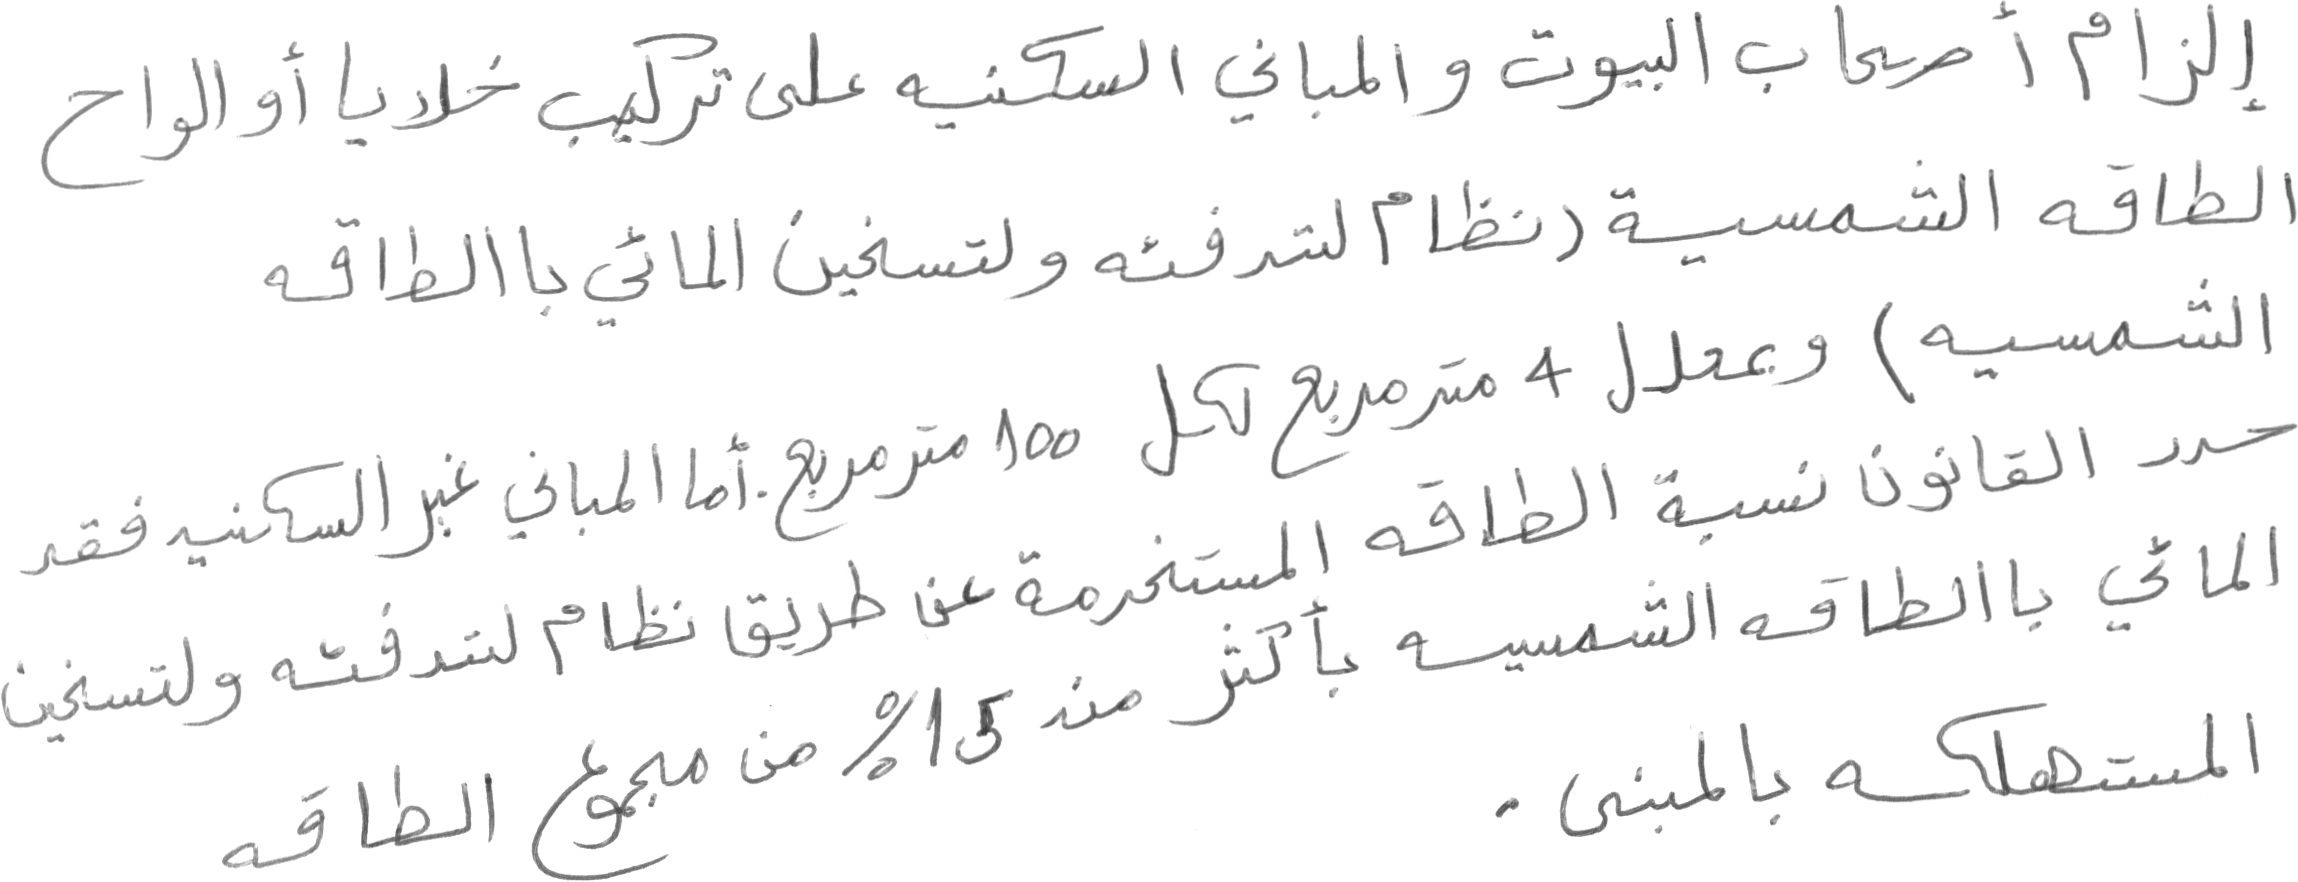 إلزام أصحاب البيوت والمباني السكنيه على تركيب خلايا أو الواح
الطاقه الشمسية (نظام لتدفئه ولتسخين المائي باالطاقه
الشمسيه) وبمعدل 4 متر مربع لكل 100 متر مربع. أما المباني غير السكنيه فقد
حدد القانون نسبة الطاقه المستخدمة عن طريق نظام لتدفئه ولتسخين
المائي باالطاقه الشمسيه بأكثر من 15% من مجموع الطاقه
المستهلكه بالمبنى.